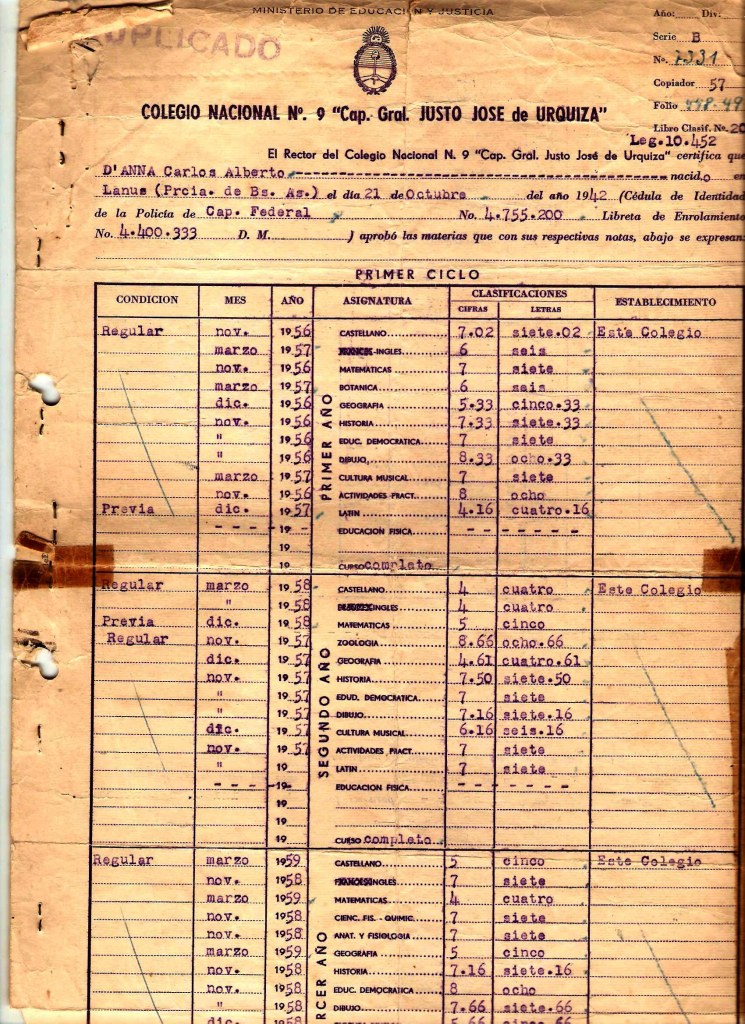 MINISTERIO DE EDUCACION Y JUSTICIA
DUPLICADO
Año: Div:
Serie B
No. 7331
Copiador 57
Folio 448-49
Libro Clasif. No. 20
Leg.10.452
COLEGIO NACIONAL Nº. 9 "Cap. Gral. JUSTO JOSE de URQUIZA"
El Rector del Colegio Nacional N. 9 "Cap. Gral. Justo José de Urquiza" certifica que
D'ANNA Carlos Alberto ---------- nacido en
Lanus (Prcia. de Bs. As.) el día 21 de Octubre del año 1942 (Cédula de Identidad
de la Policía de Cap. Federal No. 4.755.200 Libreta de Enrolamiento
No. 4.400.333 D. M. ) aprobó las materias que con sus respectivas notas, abajo se expresan:
PRIMER CICLO
CONDICION MES AÑO ASIGNATURA CLASIFICACIONES ESTABLECIMIENTO
CIFRAS LETRAS
PRIMER AÑO
Regular nov. 1956 CASTELLANO 7.02 siete.02 Este Colegio
marzo 1957 FRANCES-INGLES 6 seis
nov. 1956 MATEMATICAS 7 siete
marzo 1957 BOTANICA 6 seis
dic. 1956 GEOGRAFIA 5.33 cinco.33
nov. 1956 HISTORIA 7.33 siete.33
" 1956 EDUC. DEMOCRATICA 7 siete
" 1956 DIBUJO 8.33 ocho.33
marzo 1957 CULTURA MUSICAL 7 siete
nov. 1956 ACTIVIDADES PRACT. 8 ocho
Previa dic. 1957 LATIN 4.16 cuatro.16
- - - - - 19 EDUCACION FISICA - - - - - - -
19
19 CURSO completo
SEGUNDO AÑO
Regular marzo 1958 CASTELLANO 4 cuatro Este Colegio
" 1958 INGLES 4 cuatro
Previa dic. 1958 MATEMATICAS 5 cinco
Regular nov. 1957 ZOOLOGIA 8.66 ocho.66
dic. 1957 GEOGRAFIA 4.61 cuatro.61
nov. 1957 HISTORIA 7.50 siete.50
" 1957 EDUD. DEMOCRATICA 7 siete
" 1957 DIBUJO 7.16 siete.16
dic. 1957 CULTURA MUSICAL 6.16 seis.16
nov. 1957 ACTIVIDADES PRACT. 7 siete
" 19 LATIN 7 siete
- - - - - 19 EDUCACION FISICA - - - - - - -
19
19
19 CURSO completo
RCER AÑO
Regular marzo 1959 CASTELLANO 5 cinco Este Colegio
nov. 1958 FRANCES INGLES 7 siete
marzo 1959 MATEMATICAS 4 cuatro
nov. 1958 CIENC. FIS. - QUIMIC. 7 siete
nov. 1958 ANAT. Y FISIOLOGIA 7 siete
marzo 1959 GEOGRAFIA 5 cinco
nov. 1958 HISTORIA 7.16 siete.16
nov. 1958 EDUC. DEMOCRATICA 8 ocho
" 1958 DIBUJO 7.66 siete.66
dic. 1958